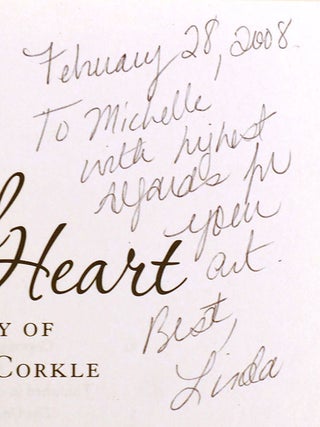 February 28, 2008.
To Michelle
with highest
regards for
your
art.
Heart
Best,
Y OF
CORKLE
Linda